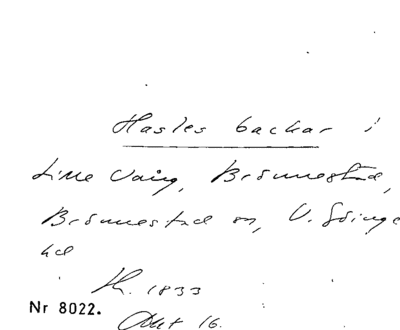 Hasles backar i
Lille Vång, Brönnestad,
Brönnestad sn, V. Göinge
hd
h. 1833
Nr 8022.
Akt 16.